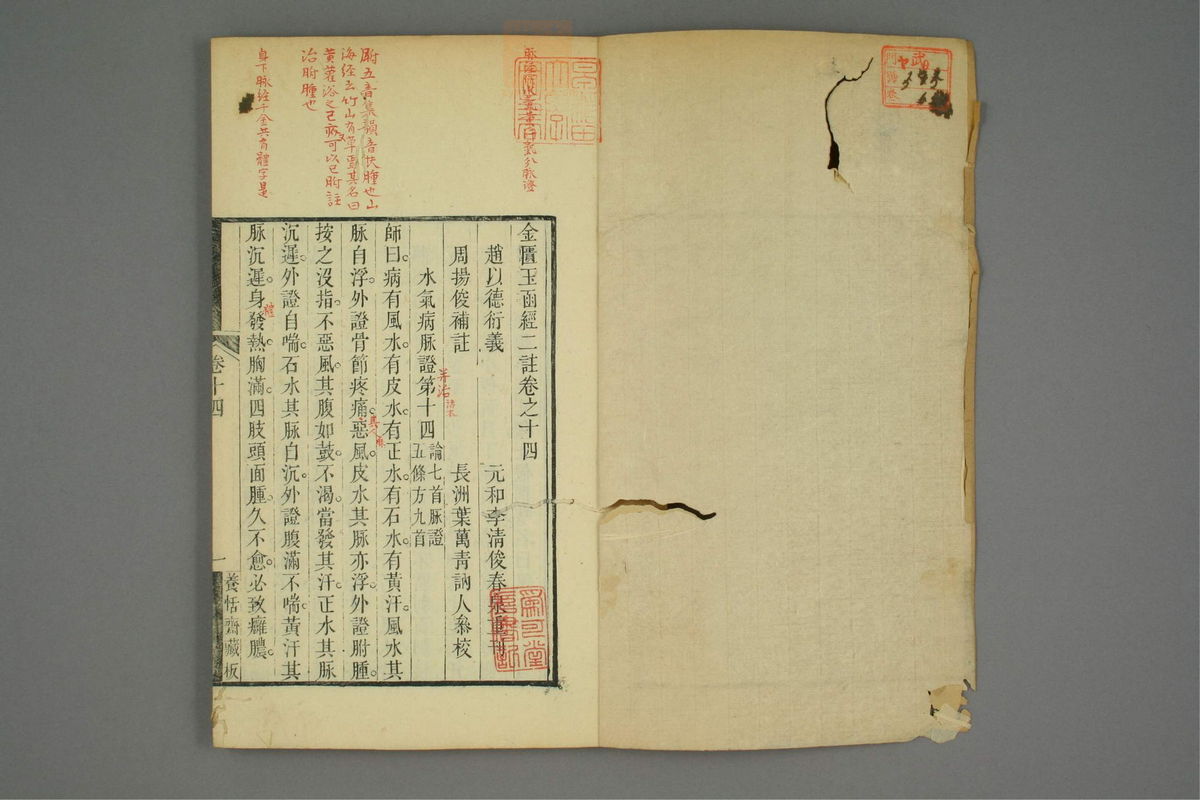 金匱玉函經二註卷之十四
趙以德衍義　元和李清俊春泉重刊
周揚俊補註　長洲葉萬青訥人叅校
水氣病脈證第十四
論七首脈證
五條方九首
師曰病有風水有皮水有正水有石水有黃汗風水其
脈自浮外證骨節疼痛惡風皮水其脈亦浮外證胕腫
按之沒指不惡風其腹如鼓不渴當發其汗正水其脈
沉遲外證自喘石水其脈自沉外證腹滿不喘黃汗其
脈沉遲身發熱胸滿四肢頭面腫久不愈必致癰膿
卷十四
一
養恬齋藏板
并治
其人
體
胕五音集韻音扶腫也山
海經云竹山有草焉其名曰
黃雚浴之已疥又可以已胕註
治胕腫也
身下脉經千金共有體字是